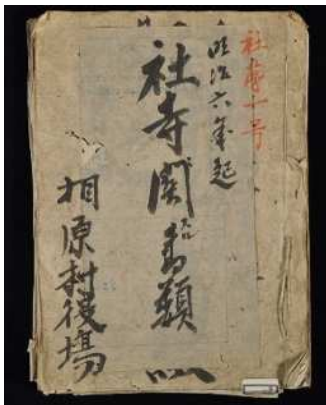 社寺十号
明治六年起
社寺関書類
相原村役場